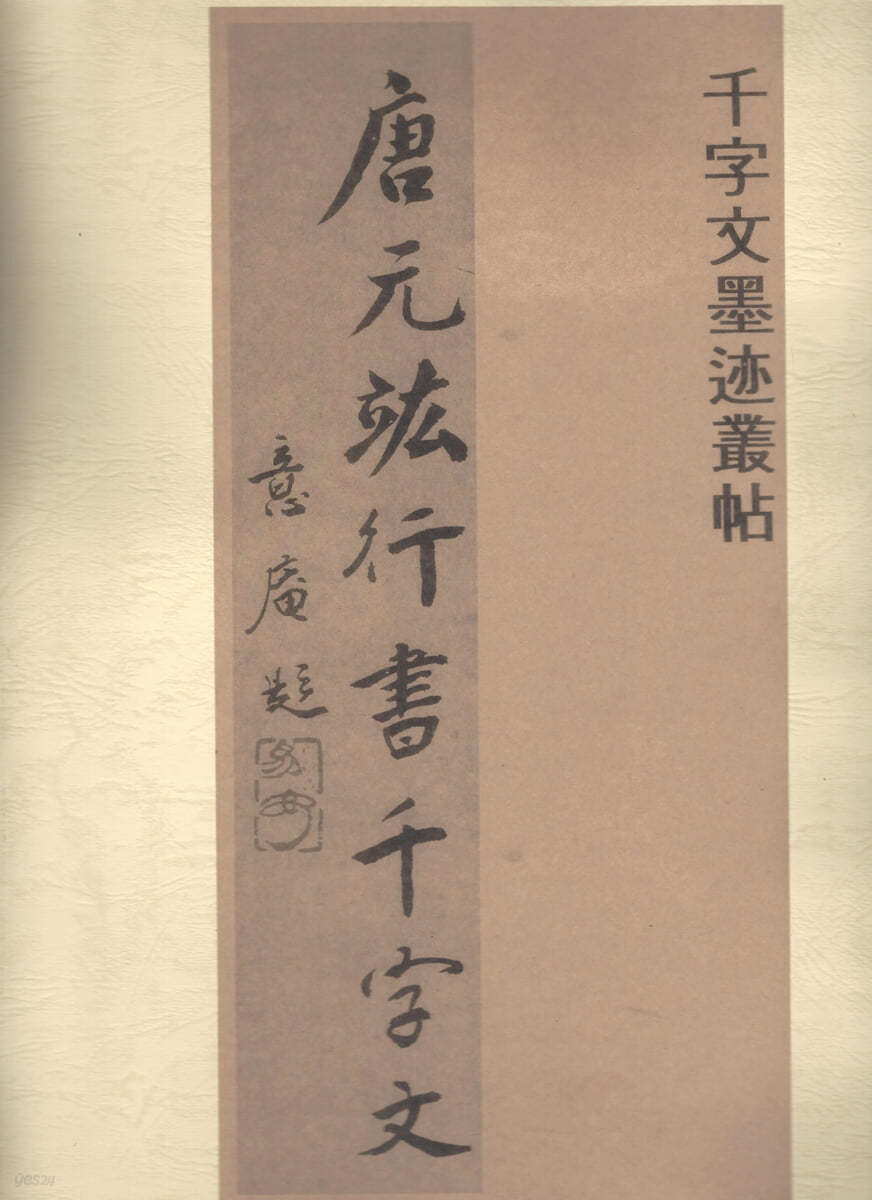 千字文墨迹叢帖
唐元竑行書千字文
意庵題
yes24